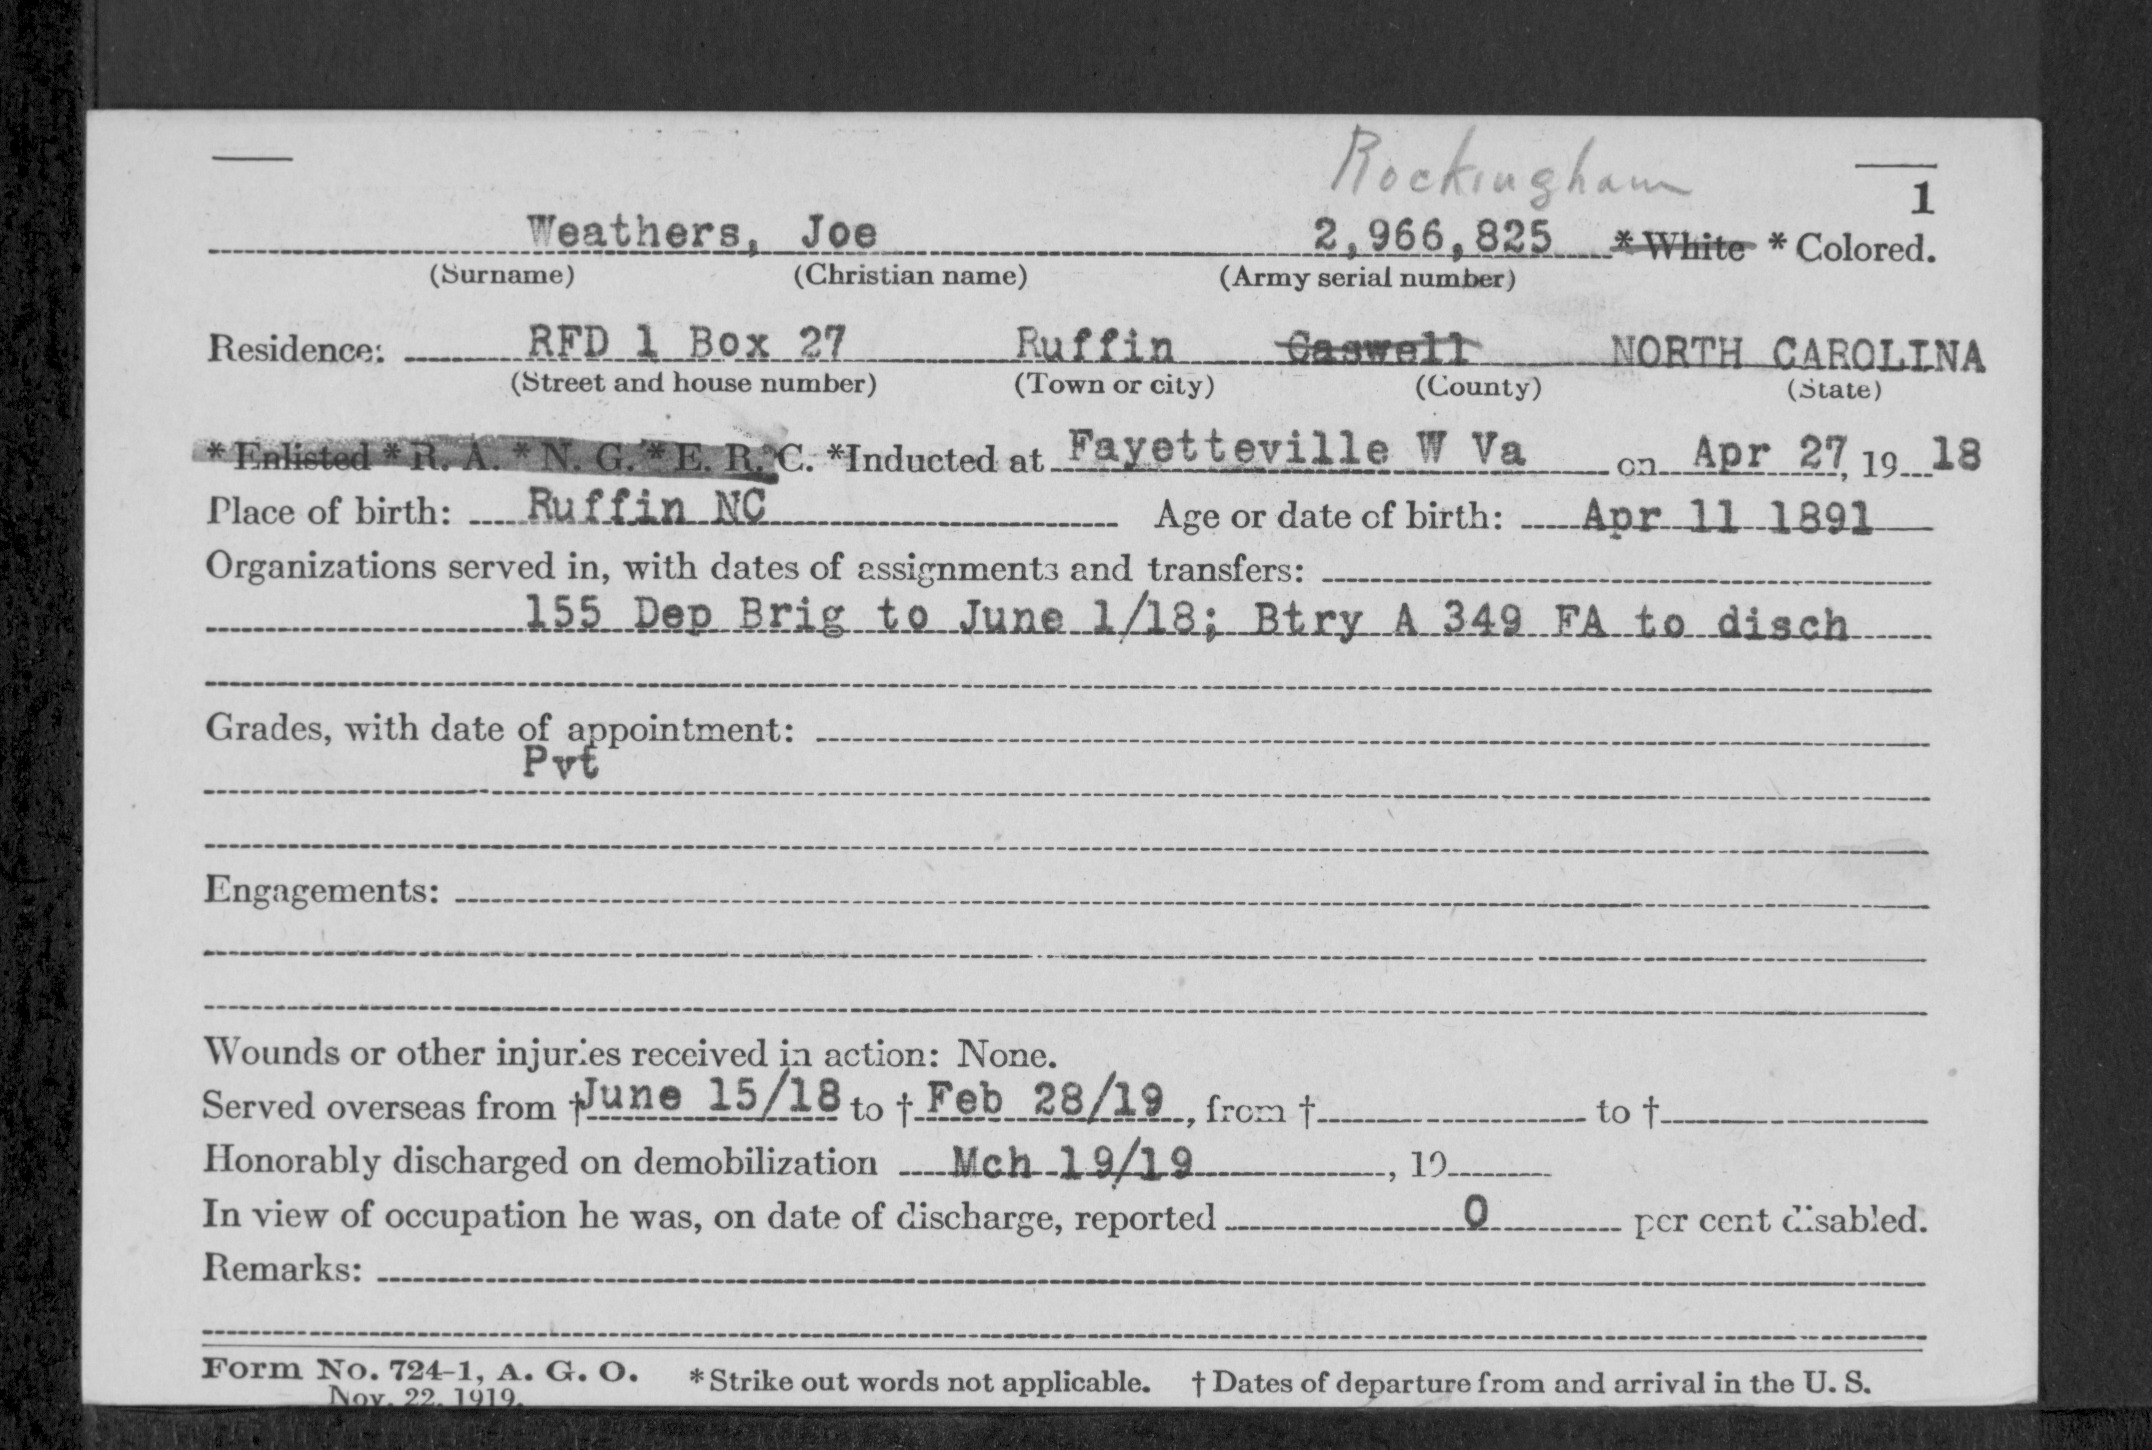 Rockingham
1
Weathers, Joe 2,966,825 * White * Colored.
(Surname) (Christian name) (Army serial number)
Residence: RFD 1 Box 27 Ruffin Caswell NORTH CAROLINA
(Street and house number) (Town or city) (County) (State)
* Enlisted * R. A. * N. G. * E. R. C. *Inducted at Fayetteville W Va on Apr 27, 19 18
Place of birth: Ruffin NC Age or date of birth: Apr 11 1891
Organizations served in, with dates of assignments and transfers:
155 Dep Brig to June 1/18; Btry A 349 FA to disch
Grades, with date of appointment:
Pvt
Engagements:
Wounds or other injuries received in action: None.
Served overseas from † June 15/18 to † Feb 28/19, from † to †
Honorably discharged on demobilization Mch 19/19, 19
In view of occupation he was, on date of discharge, reported 0 per cent disabled.
Remarks:
Form No. 724-1, A. G. O. * Strike out words not applicable. † Dates of departure from and arrival in the U. S.
Nov. 22, 1919.